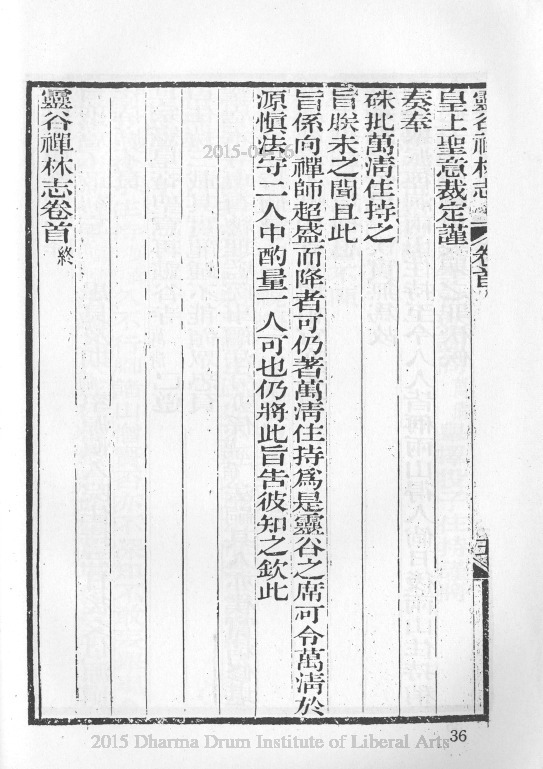 靈谷禪林志 卷首
皇上聖意裁定謹
奏奉
硃批萬淸住持之
旨朕未之聞且此
旨係向禪師超盛而降者可仍著萬淸住持爲是靈谷之席可令萬淸於
源愼法守二人中酌量一人可也仍將此旨吿彼知之欽此
靈谷禪林志卷首終
36
2015 Dharma Drum Institute of Liberal Arts